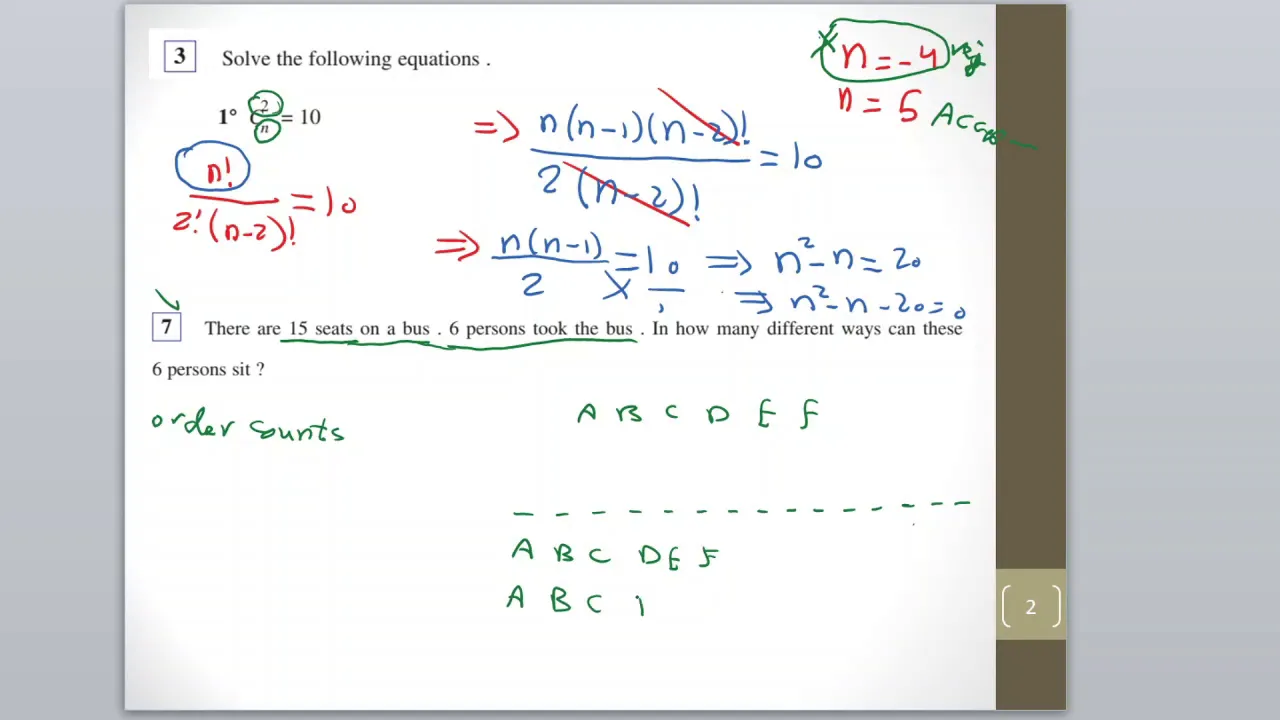 3 Solve the following equations .
1° C 2 n = 10
n! / 2! (n-2)! = 10
=> n(n-1)(n-2)! / 2 (n-2)! = 10
=> n(n-1) / 2 = 10 / 1 => n² - n = 20
=> n² - n - 20 = 0
× n = -4 rej
n = 5
7 There are 15 seats on a bus . 6 persons took the bus . In how many different ways can these
6 persons sit ?
order counts
A B C D E F
_ _ _ _ _ _ _ _ _ _ _ _ _ _ _
A B C D E F
A B C
2